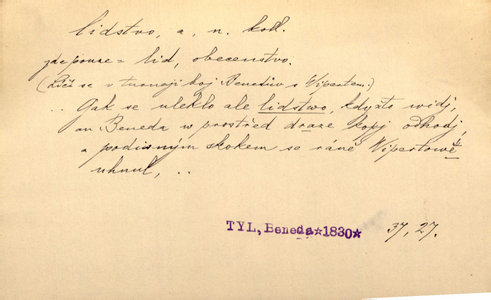 lidstvo, a, n. koll.
zde pouze = lid, obecenstvo.
(Líčí se v turnaji boj Benedův s Vipertem:)
.. Jak se uleklo ale lidstwo, kdyžto widj,
an Beneda w prostřed draze kopj odhodj,
a podiwným skokem se ráně Wipertowě
uhnul, ..
TYL, Beneda*1830* 37, 27.